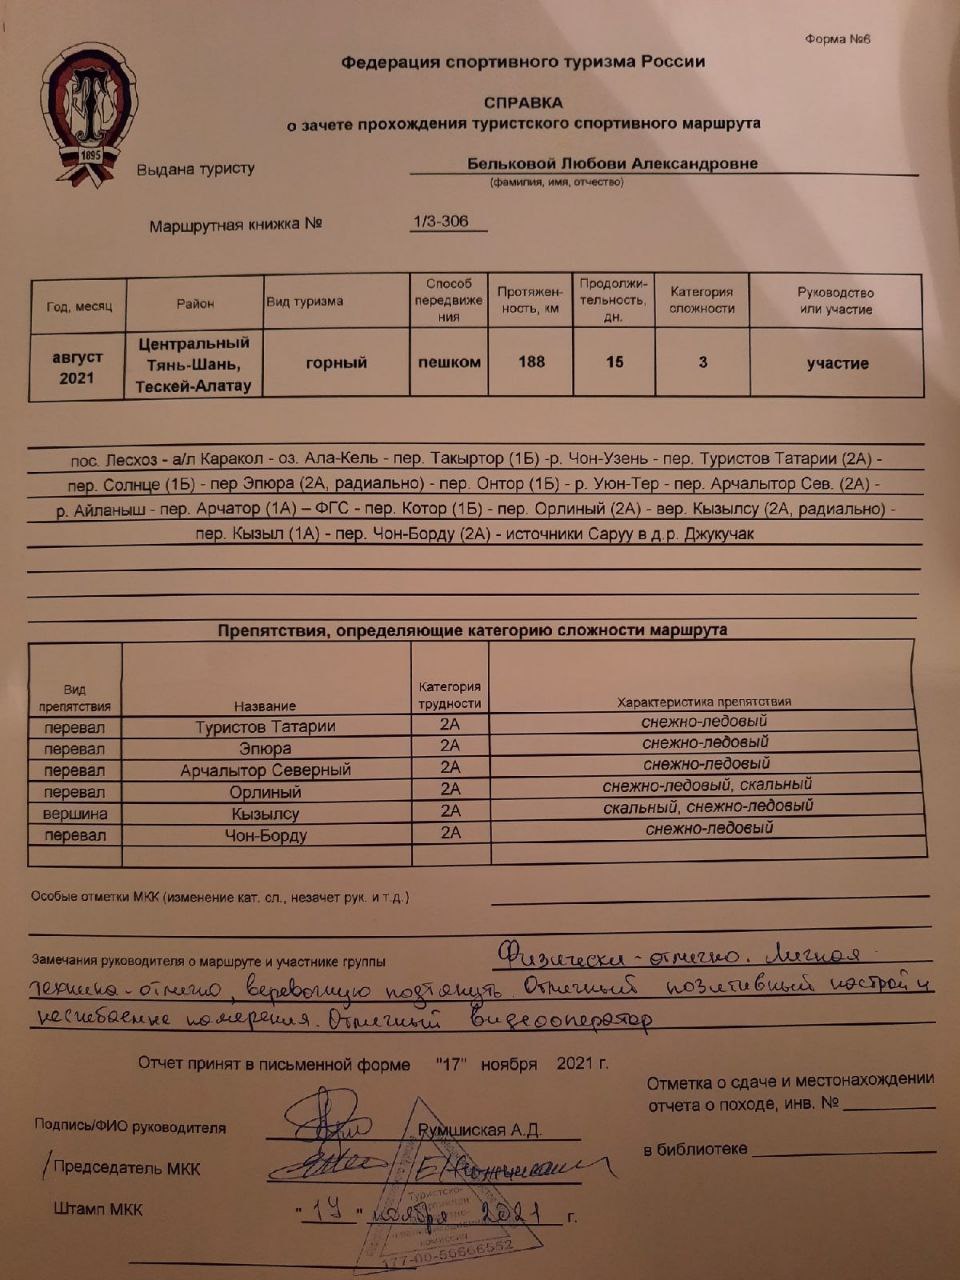 Форма №6
Федерация спортивного туризма России
СПРАВКА
о зачете прохождения туристского спортивного маршрута
1895
Выдана туристу Бельковой Любови Александровне
(фамилия, имя, отчество)
Маршрутная книжка № 1/3-306
Год, месяц Район Вид туризма Способ передвиже ния Протяжен- ность, км Продолжи- тельность, дн. Категория сложности Руководство или участие
август 2021 Центральный Тянь-Шань, Тескей-Алатау горный пешком 188 15 3 участие
пос. Лесхоз - а/л Каракол - оз. Ала-Кель - пер. Такыртор (1Б) -р. Чон-Узень - пер. Туристов Татарии (2А) -
пер. Солнце (1Б) - пер Эпюра (2А, радиально) - пер. Онтор (1Б) - р. Уюн-Тер - пер. Арчальтор Сев. (2А) -
р. Айланыш - пер. Арчатор (1А) – ФГС - пер. Котор (1Б) - пер. Орлиный (2А) - вер. Кызылсу (2А, радиально) -
пер. Кызыл (1А) - пер. Чон-Борду (2А) - источники Саруу в д.р. Джукучак
Препятствия, определяющие категорию сложности маршрута
Вид препятствия Название Категория трудности Характеристика препятствия
перевал Туристов Татарии 2А снежно-ледовый
перевал Эпюра 2А снежно-ледовый
перевал Арчалытор Северный 2А снежно-ледовый
перевал Орлиный 2А снежно-ледовый, скальный
вершина Кызылсу 2А скальный, снежно-ледовый
перевал Чон-Борду 2А снежно-ледовый
Особые отметки МКК (изменение кат. сл., незачет рук. и т.д.)
Замечания руководителя о маршруте и участнике группы Физически - отлично. Личная
техника - отлично, веревочную подтянуть. Отличный позитивный настрой и
несгибаемые намерения. Отличный видеооператор
Отчет принят в письменной форме "17" ноября 2021 г.
Отметка о сдаче и местонахождении
отчета о походе, инв. №
Подпись/ФИО руководителя Румшиская А.Д.
в библиотеке
Председатель МКК
Штамп МКК "17" ноября 2021 г.
177-00-56666552